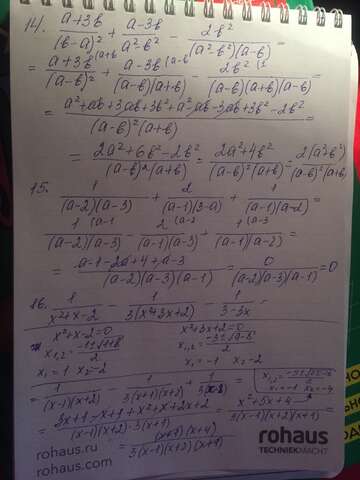 14. a+3b/(b-a)² + a-3b/a²-b² - 2b²/(a²-b²)(a-b) =
= a+3b (a+b/(a-b)² + a-3b (a-b/(a-b)(a+b) - 2b² (1/(a-b)(a+b)(a-b) =
= a²+ab+3ab+3b²+a²-ab-3ab+3b²-2b²/(a-b)²(a+b) =
= 2a²+6b²-2b²/(a-b)²(a+b) = 2a²+4b²/(a-b)²(a+b) = 2(a²+b²)/(a-b)²(a+b)
15. 1/(a-2)(a-3) + 2/(a-1)(3-a) + 1/(a-1)(a-2) =
= 1 (a-1/(a-2)(a-3) - 2 (a-2/(a-1)(a-3) + 1 (a-3/(a-1)(a-2) =
= a-1-2a+4+a-3/(a-2)(a-3)(a-1) = 0/(a-2)(a-3)(a-1) = 0
16. 1/x²+x-2 - 1/3(x²+3x+2) - 1/3-3x =
x²+x-2=0 x²+3x+2=0
x₁,₂= -1±√1+8/2 x₁,₂= -3±√9-8/2
x₁=1 x₂=-2 x₁=-1 x₂=-2
= 1/(x-1)(x+2) - 1/3(x+1)(x+2) + 1/3(x-1) =
x₁=-1 x₂=-4
= 3x+1-x+1+x²+x+2x+2/(x-1)(x+2)·3(x+1) = x²+5x+4/3(x-1)(x+2)(x+1) =
= (x+1)(x+4)/3(x-1)(x+2)(x+1)
rohaus.ru
rohaus.com
rohaus
TECHNIEKMACHT